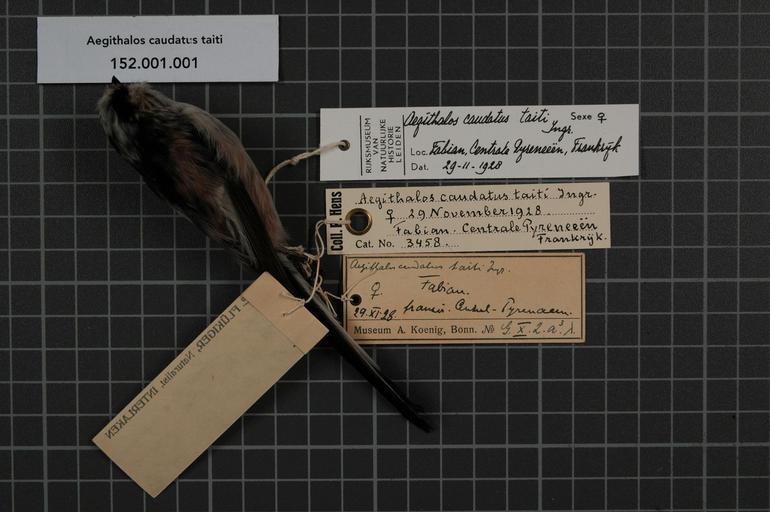 Aegithalos caudatus taiti
152.001.001
RIJKSMUSEUM
VAN
NATUURLIJKE
HISTORIE
LEIDEN
Aegithalos caudatus taiti Sexe ♀
Ingr.
Loc. Fabian, Centrale Pyreneeën, Frankrijk
Dat. 29-11-1928
Coll. F. Hens
Aegithalos caudatus taiti Ingr.
♀ 29 November 1928
Fabian. Centrale Pyreneeën
Cat. No. 3458. Frankrijk.
Aegithalos caudatus taiti Ingr.
♀ Fabian.
29.XI.28. Pyrenaeen.
Museum A. Koenig, Bonn. № G.X.2.a
FLÜKIGER, Naturalist, INTERLAKEN